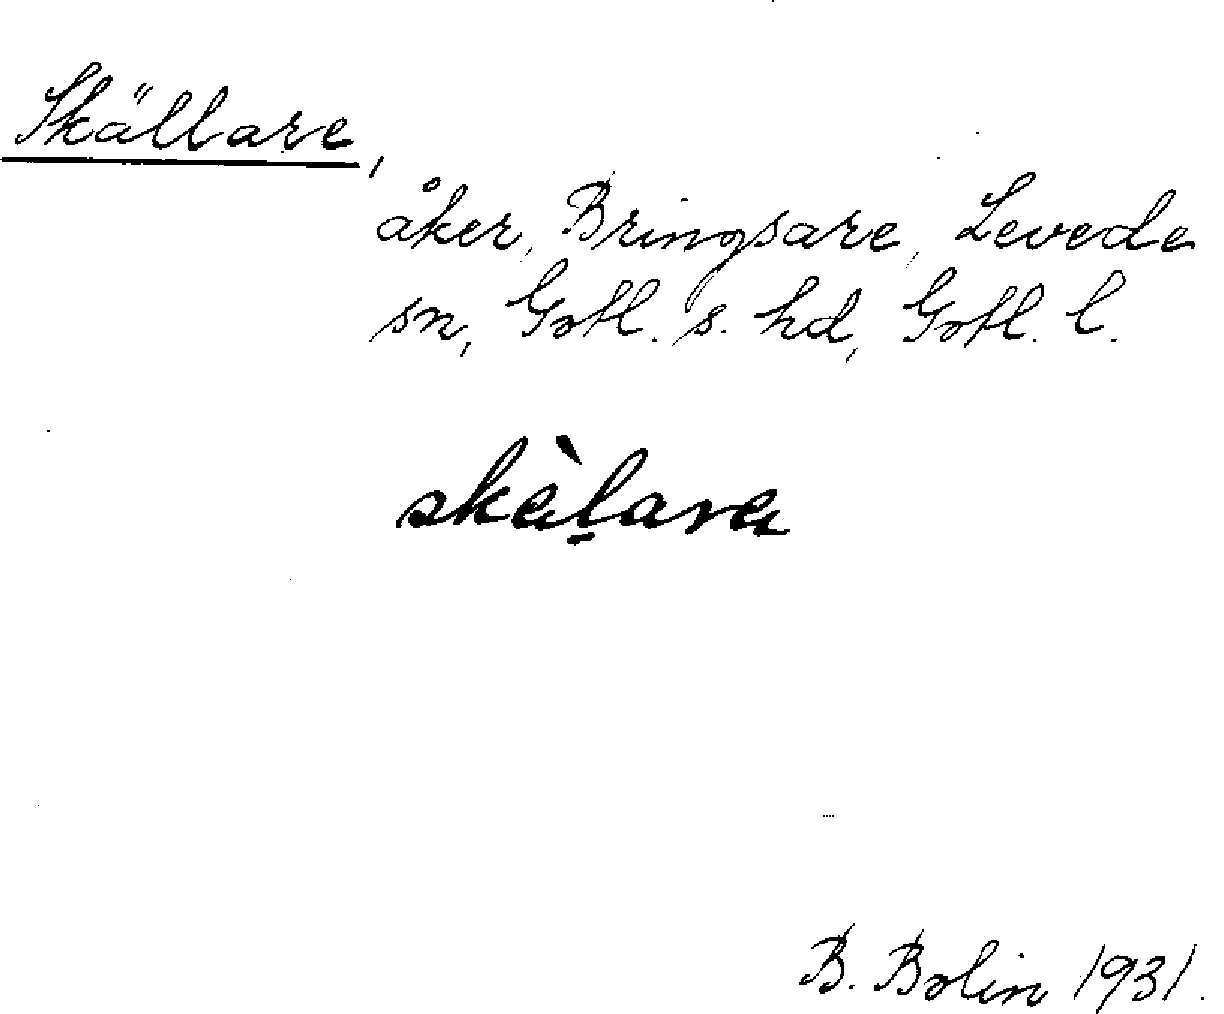 Skällare,
åker, Bringsare, Levede
sn, Gotl. s. hd, Gotl. l.
skälarä
B. Bolin 1931.